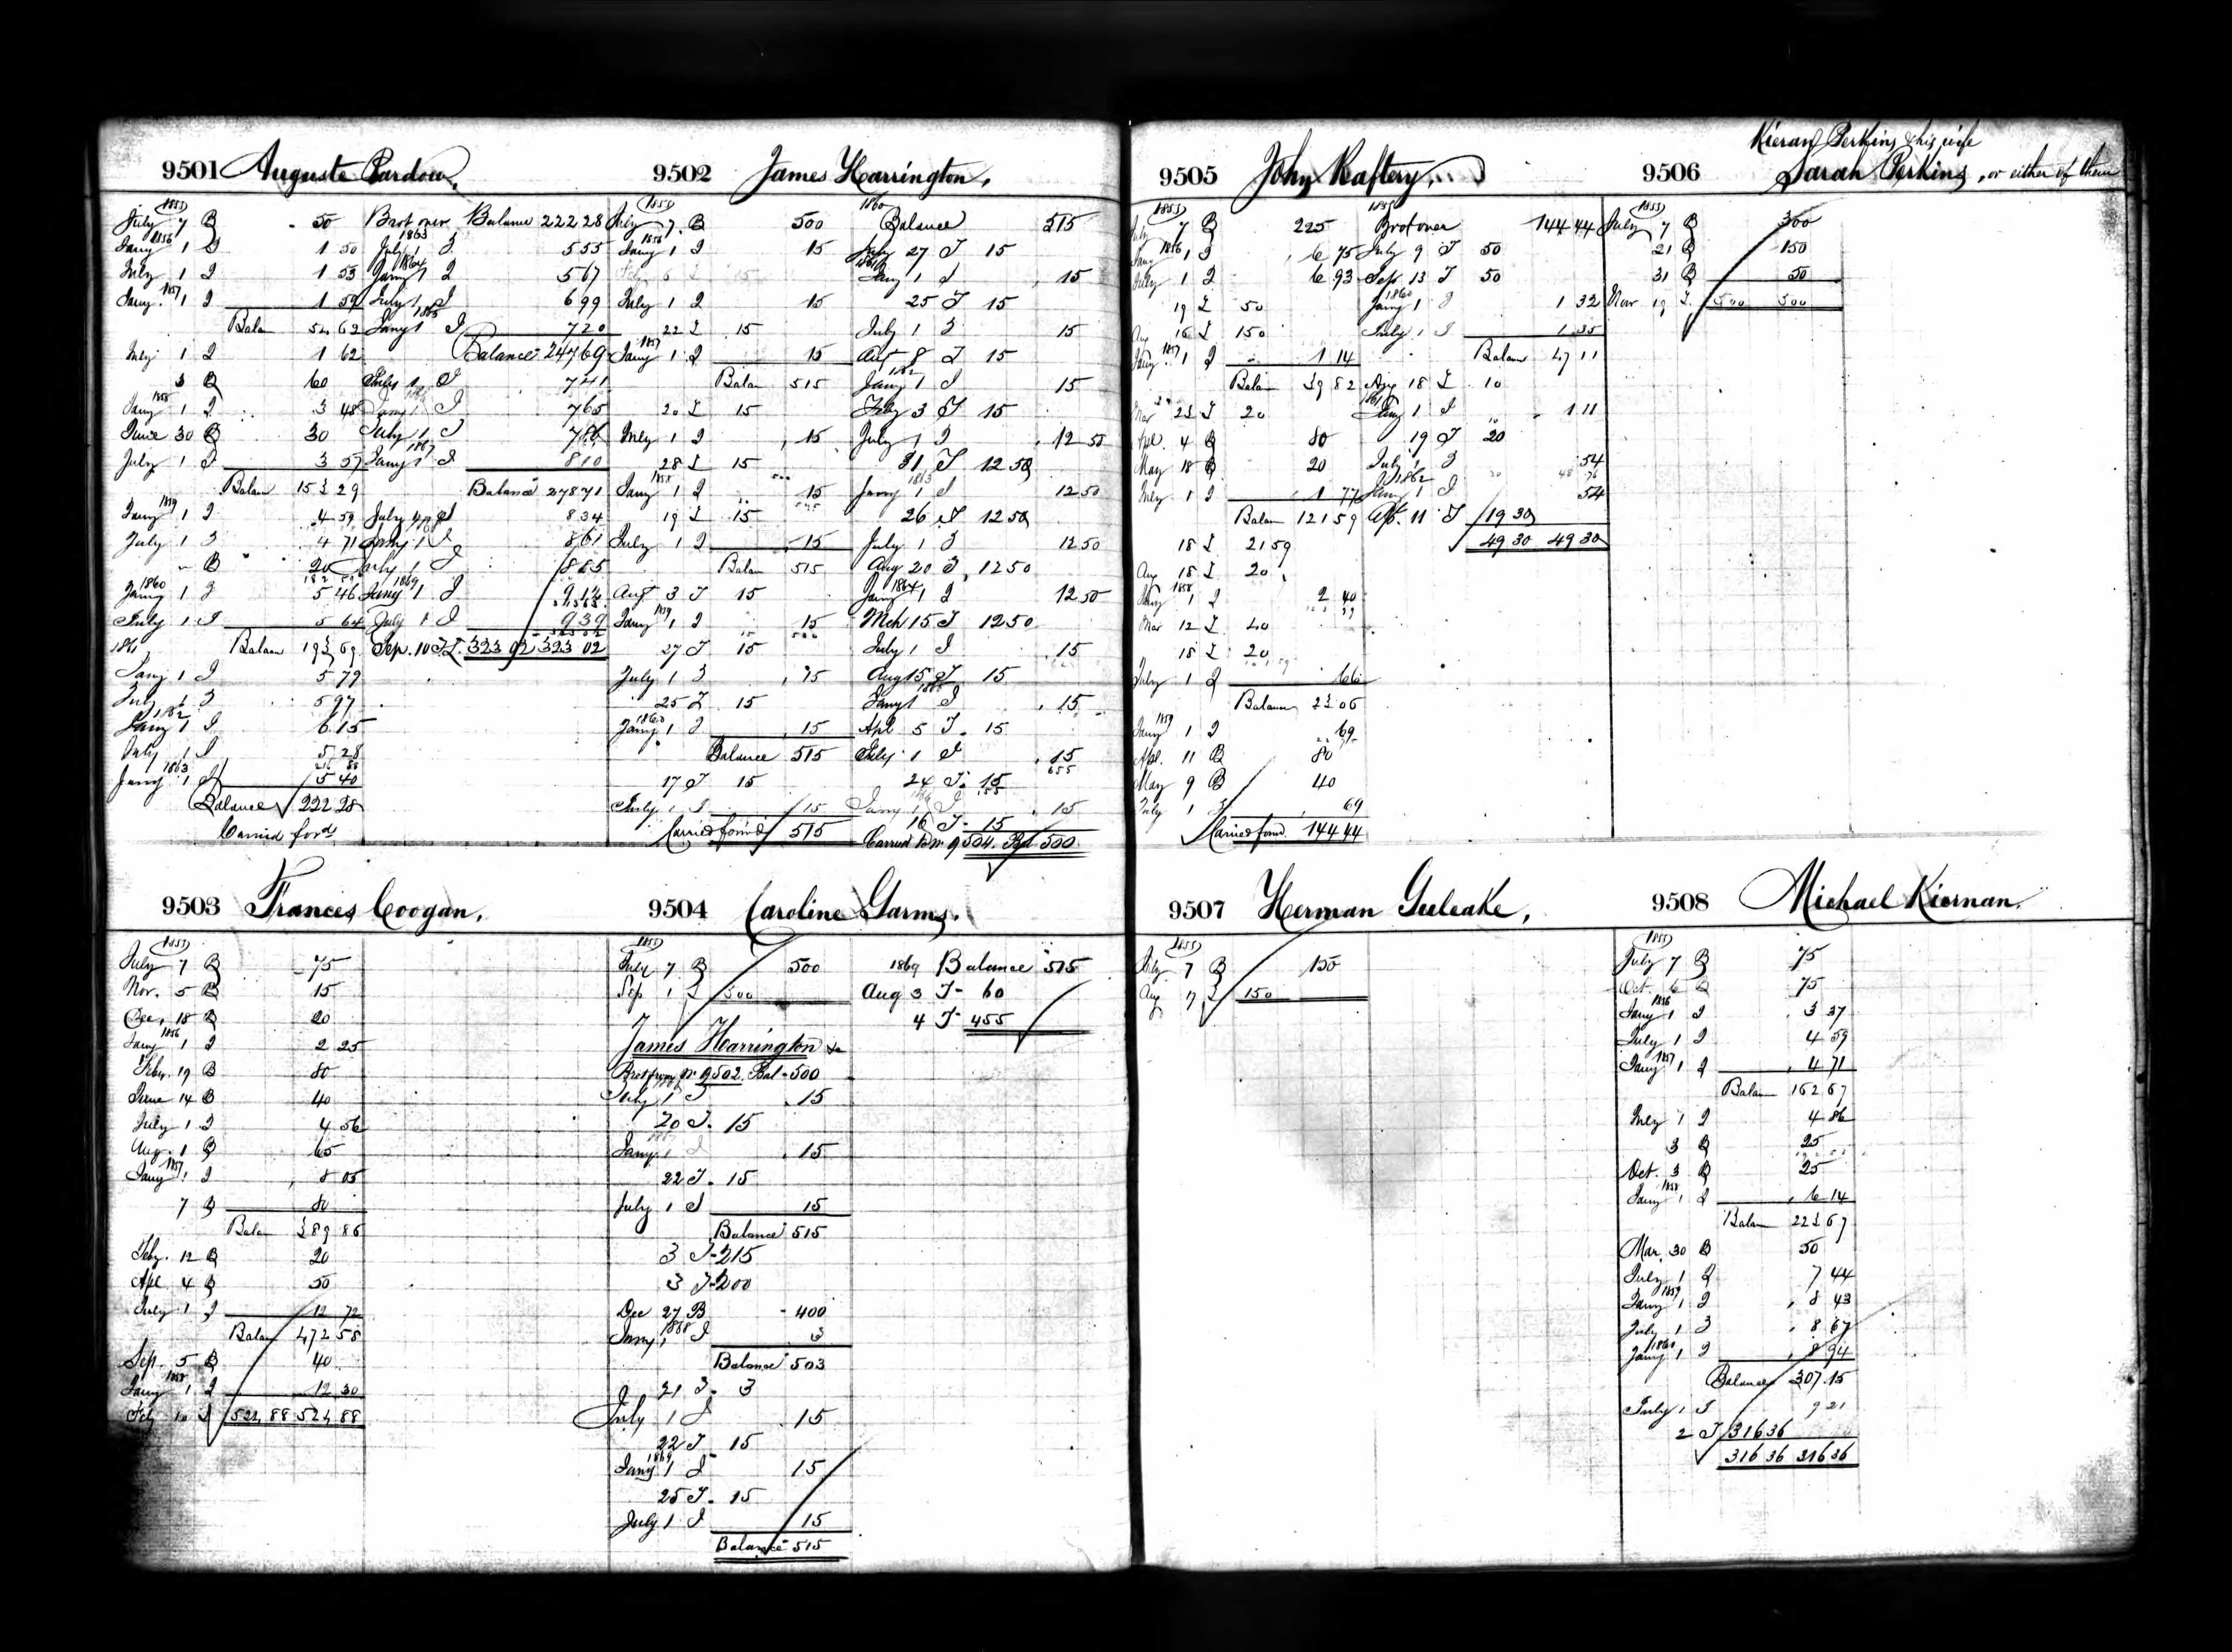 9501 Auguste Pardow.
1855
July 7 B 50
Jany 1856 1 I 1 50
July 1 I 1 53
Jany 1857 1 I 1 59
Balan 54 62
July 1 I 1 62
3 B 60
Jany 1858 1 I 3 48
June 30 B 30
July 1 I 3 57
Balan 153 29
Jany 1859 1 I 4 59
July 1 I 4 71
" B 20
1860
Jany 1 I 5 46
July 1 I 5 64
1861 Balan 193 69
Jany 1 I 5 79
July 1 I 5 97
1862
Jany 1 I 6 15
July 1 I 5 28
1863
Jany 1 I 5 40
Balance 222 28
Carried ford
Brot over Balance 222 28
1863
July 1 I 5 55
1864
Jany 1 I 5 67
July 1 I 6 99
1865
Jany 1 I 7 20
Balance 247 69
July 1 I 7 41
Jany 1 I 7 65
July 1 I 7 86
1867
Jany 1 I 8 10
Balance 278 71
July 1 I 8 34
Jany 1 I 8 61
July 1 I 8 85
1869
Jany 1 I 9 12
July 1 I 9 39
Sep. 10 T 323 02 323 02
9502 James Harrington.
1855
July 7 B 500
1856
Jany 1 I 15
July 1 I 15
22 T 15
1857
Jany 1 I 15
Balan 515
20 T 15
July 1 I 15
28 T 15
1858
Jany 1 I 15
19 T 15
July 1 I 15
Balan 515
Aug 3 T 15
1859
Jany 1 I 15
27 T 15
July 1 I 15
25 T 15
1860
Jany 1 I 15
Balance 515
17 T 15
July 1 I 15
Carried forwd 515
1860
Balance 515
July 27 T 15
1861
Jany 1 I 15
25 T 15
July 1 I 15
Aug 8 T 15
1862
Jany 1 I 15
Feby 3 T 15
July 1 I 12 50
31 T 12 50
1863
Jany 1 I 12 50
26 T 12 50
July 1 I 12 50
Aug 20 T 12 50
1864
Jany 1 I 12 50
Mch 15 T 12 50
July 1 I 15
Aug 15 T 15
1865
Jany 1 I 15
Apl 5 T 15
July 1 I 15
24 T 15
Jany 1 I 15
16 T 15
Carried to No 9504. Bal 500
9503 Frances Coogan.
1855
July 7 B 75
Nov. 5 B 15
Dec. 18 B 20
1856
Jany 1 I 2 25
Feby. 19 B 80
June 14 B 40
July 1 I 4 56
Aug. 1 B 65
1857
Jany 1 I 8 05
7 B 80
Balan 389 86
Feby. 12 B 20
Apl 4 B 50
July 1 I 12 72
Balan 472 58
Sep. 5 B 40
1858
Jany 1 I 12 30
Feby 10 T 524 88 524 88
9504 Caroline Garms.
1855
July 7 B 500
Sep 1 T 500
James Harrington
Brot from No 9502. Bal 500
July 1 I 15
20 T. 15
Jany 1 I 15
22 T. 15
July 1 I 15
Balance 515
3 T 215
3 T 200
Dec 27 B 400
1868
Jany 1 I 3
Balance 503
21 T. 3
July 1 I 15
22 T 15
1869
Jany 1 I 15
25 T. 15
July 1 I 15
Balance 515
1869 Balance 515
Aug 3 T 60
4 T 455
9505 John Raftery.
1855
July 7 B 225
1856
Jany 1 I 6 75
July 1 I 6 93
19 T 50
Aug 16 T 150
1857
Jany 1 I 1 14
Balan 39 82
Mar 23 T 20
Apl. 4 B 80
May 18 B 20
July 1 I 1 77
Balan 121 59
18 T 21 59
Aug 18 T 20
1858
Jany 1 I 2 40
Mar 12 T 40
18 T 20
July 1 I 66
Balance 23 06
1859
Jany 1 I 69
Apl. 11 B 80
May 9 B 40
July 1 I 69
Carried forwd. 144 44
Brot over 144 44
July 9 T 50
Sep 13 T 50
1860
Jany 1 I 1 32
July 1 I 1 35
Balan 47 11
Aug 18 T 10
1861
Jany 1 I 1 11
19 T 20
July 1 I 54
1862
Jany 1 I 54
Apl. 11 T 19 30
49 30 49 30
Kieran Perkins & his wife
9506 Sarah Perkins, or either of them
1855
July 7 B 300
21 B 150
31 B 50
Nov 19 T 500 500
9507 Herman Guleake,
1855
July 7 B 150
Aug 17 T 150
9508 Michael Kiernan.
1855
July 7 B 75
Oct. 6 B 75
1856
Jany 1 I 3 37
July 1 I 4 59
1857
Jany 1 I 4 71
Balan 162 67
July 1 I 4 86
3 B 25
Oct. 3 B 25
1858
Jany 1 I 6 14
Balan 223 67
Mar. 30 B 50
July 1 I 7 44
1859
Jany 1 I 8 43
July 1 I 8 67
1860
Jany 1 I 8 94
Balance 307.15
July 1 I 9 21
2 T 316 36
316 36 316 36